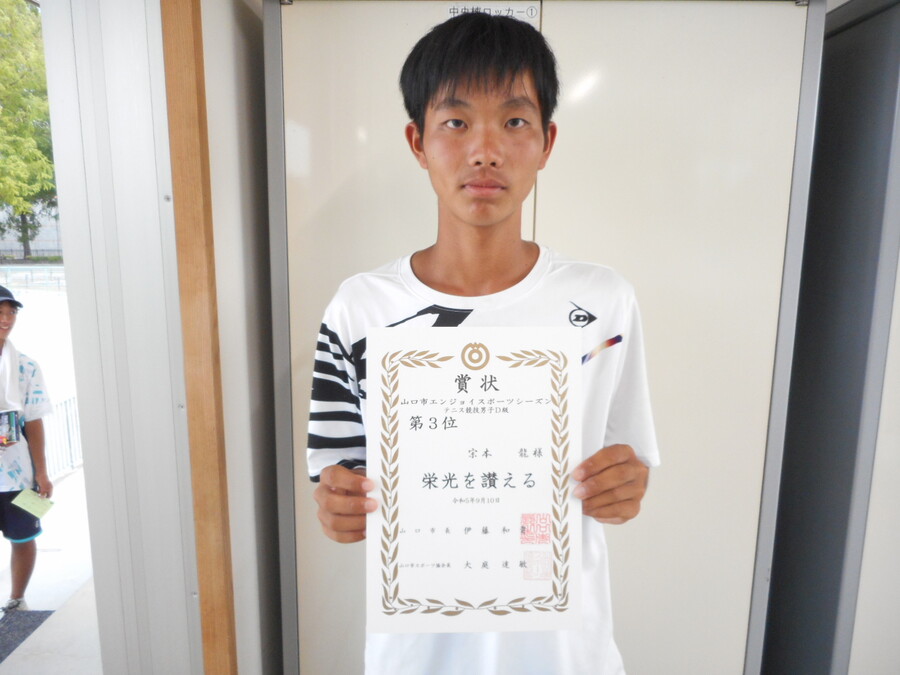 中央棟ロッカー①
D
賞状
山口市エンジョイスポーツシーズン
テニス競技男子D級
第3位
宗本 龍様
栄光を讃える
令和5年9月10日
山口市長 伊藤和
大庭達敏